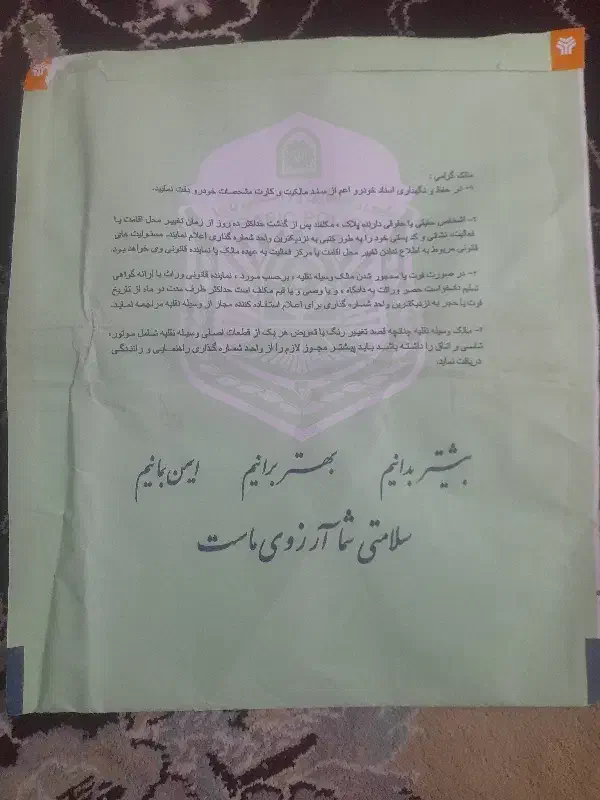 مالک گرامی :
۱- در حفظ و نگهداری اسناد خودرو اعم از سند مالکیت و کارت مشخصات خودرو دقت نمایید.
۲- اشخاص حقیقی یا حقوقی دارنده پلاک ، مکلفند پس از گذشت حداکثر ده روز از زمان تغییر محل اقامت یا
فعالیت، نشانی و کد پستی خود را به طور کتبی به نزدیکترین واحد شماره گذاری اعلام نمایند. مسئولیت های
قانونی مربوط به اطلاع ندادن تغییر محل اقامت یا مرکز فعالیت به عهده مالک یا نماینده قانونی وی خواهد بود.
۳- در صورت فوت یا محجور شدن مالک وسیله نقلیه ، برحسب مورد ، نماینده قانونی وراث با ارائه گواهی
تسلیم دادخواست حصر وراثت به دادگاه ، و یا وصی و یا قیم مکلف است حداکثر ظرف مدت دو ماه از تاریخ
فوت یا حجر به نزدیکترین واحد شماره گذاری برای اعلام استفاده کننده مجاز از وسیله نقلیه مراجعه نماید.
۴- مالک وسیله نقلیه چنانچه قصد تغییر رنگ یا تعویض هر یک از قطعات اصلی وسیله نقلیه شامل موتور،
شاسی و اتاق را داشته باشد باید پیشتر مجوز لازم را از واحد شماره گذاری راهنمایی و رانندگی
دریافت نماید.
بیشتر بدانیم بهتر برانیم ایمن بمانیم
سلامتی شما آرزوی ماست